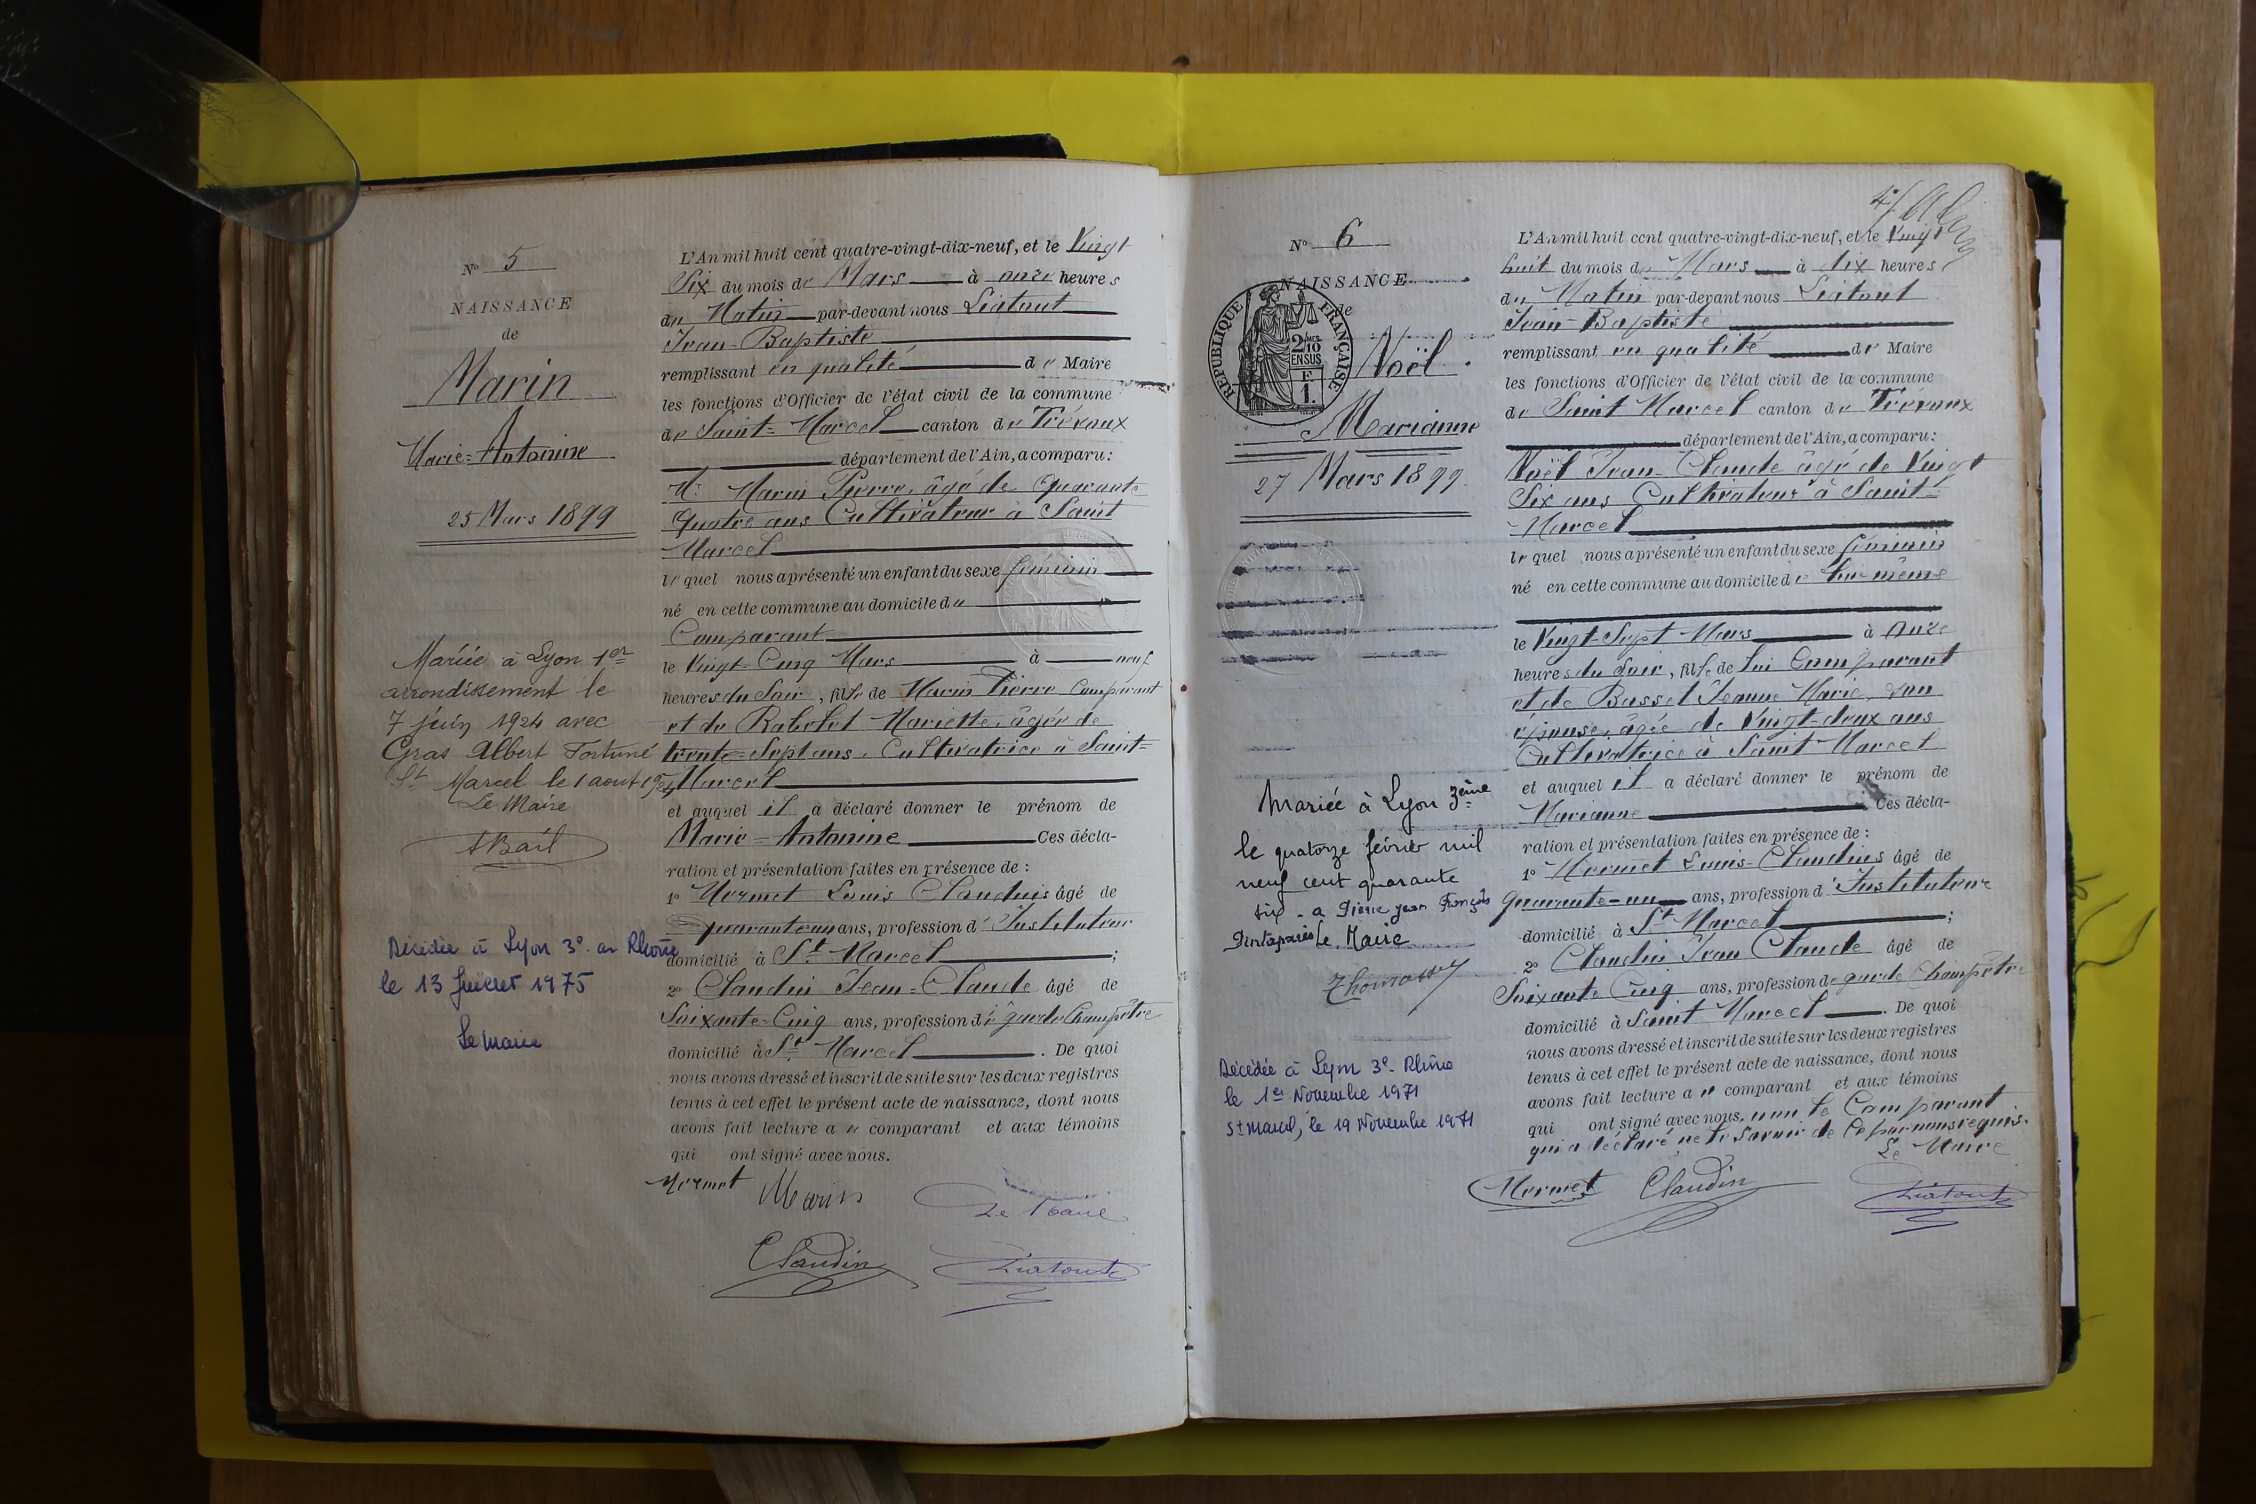 Nº 5
NAISSANCE
de
Marin
Marie=Antonine
25 Mars 1899
Mariée à Lyon 1er
arrondissement le
7 juin 1924 avec
Gras Albert Fortuné
St Marcel le 1 aout 1924
Le Maire
Décédée à Lyon 3e ar Rhône
le 13 Juillet 1975
Le Maire
L'An mil huit cent quatre-vingt-dix-neuf, et le Vingt
Six du mois de Mars à onze heures
du Matin par-devant nous Liatout
Jean-Baptiste
remplissant en qualité de Maire
les fonctions d'Officier de l'état civil de la commune
de Saint=Marcel canton de Trévoux
département de l'Ain, a comparu:
Mr Marin Pierre, âgé de Quarante
Quatre ans Cultivateur à Saint
Marcel
le quel nous a présenté un enfant du sexe féminin
né en cette commune au domicile du
Comparant
le Vingt=Cinq Mars à neuf
heures du Soir, fille de Marin Pierre Comparant
et de Rabolet Mariette, âgée de
trente=Sept ans, Cultivatrice à Saint=
Marcel
et auquel il a déclaré donner le prénom de
Marie=Antonine Ces décla-
ration et présentation faites en présence de :
1º Mermet Louis Claudius âgé de
Quarante un ans, profession d'Instituteur
domicilié à St Marcel ;
2º Claudin Jean=Claude âgé de
Soixante=Cinq ans, profession de garde Champêtre
domicilié à St Marcel . De quoi
nous avons dressé et inscrit de suite sur les deux registres
tenus à cet effet le présent acte de naissance, dont nous
avons fait lecture au comparant et aux témoins
qui ont signé avec nous.
Mermet Marin Le Maire
Claudin Liatout
Nº 6
NAISSANCE
de
RÉPUBLIQUE FRANÇAISE
2/10 EN SUS
F
1.
Noël
Marianne
27 Mars 1899.
Mariée à Lyon 3ème
le quatorze février mil
neuf cent quarante
six - a Pierre Jean François
Le Maire
Décédée à Lyon 3e - Rhône
le 1er Novembre 1971
St Marcel, le 19 Novembre 1971
L'An mil huit cent quatre-vingt-dix-neuf, et le Vingt
huit du mois de Mars à dix heures
du Matin par-devant nous Liatout
Jean-Baptiste
remplissant en qualité de Maire
les fonctions d'Officier de l'état civil de la commune
de Saint Marcel canton de Trévoux
département de l'Ain, a comparu:
Noël Jean-Claude âgé de Vingt
Six ans Cultivateur à Saint=
Marcel
le quel nous a présenté un enfant du sexe féminin
né en cette commune au domicile de lui-même
le Vingt-Sept Mars à Onze
heures du Soir, fille de lui Comparant
et de Basset Jeanne Marie, son
épouse, âgée de Vingt-deux ans
Cultivatrice à Saint-Marcel
et auquel il a déclaré donner le prénom de
Marianne Ces décla-
ration et présentation faites en présence de :
1º Mermet Louis-Claudius âgé de
Quarante-un ans, profession d'Instituteur
domicilié à St Marcel ;
2º Claudin Jean Claude âgé de
Soixante Cinq ans, profession de garde Champêtre
domicilié à Saint Marcel . De quoi
nous avons dressé et inscrit de suite sur les deux registres
tenus à cet effet le présent acte de naissance, dont nous
avons fait lecture au comparant et aux témoins
qui ont signé avec nous, non le Comparant
qui a déclaré ne le savoir de ce par nous requis.
Le Maire
Mermet Claudin Liatout